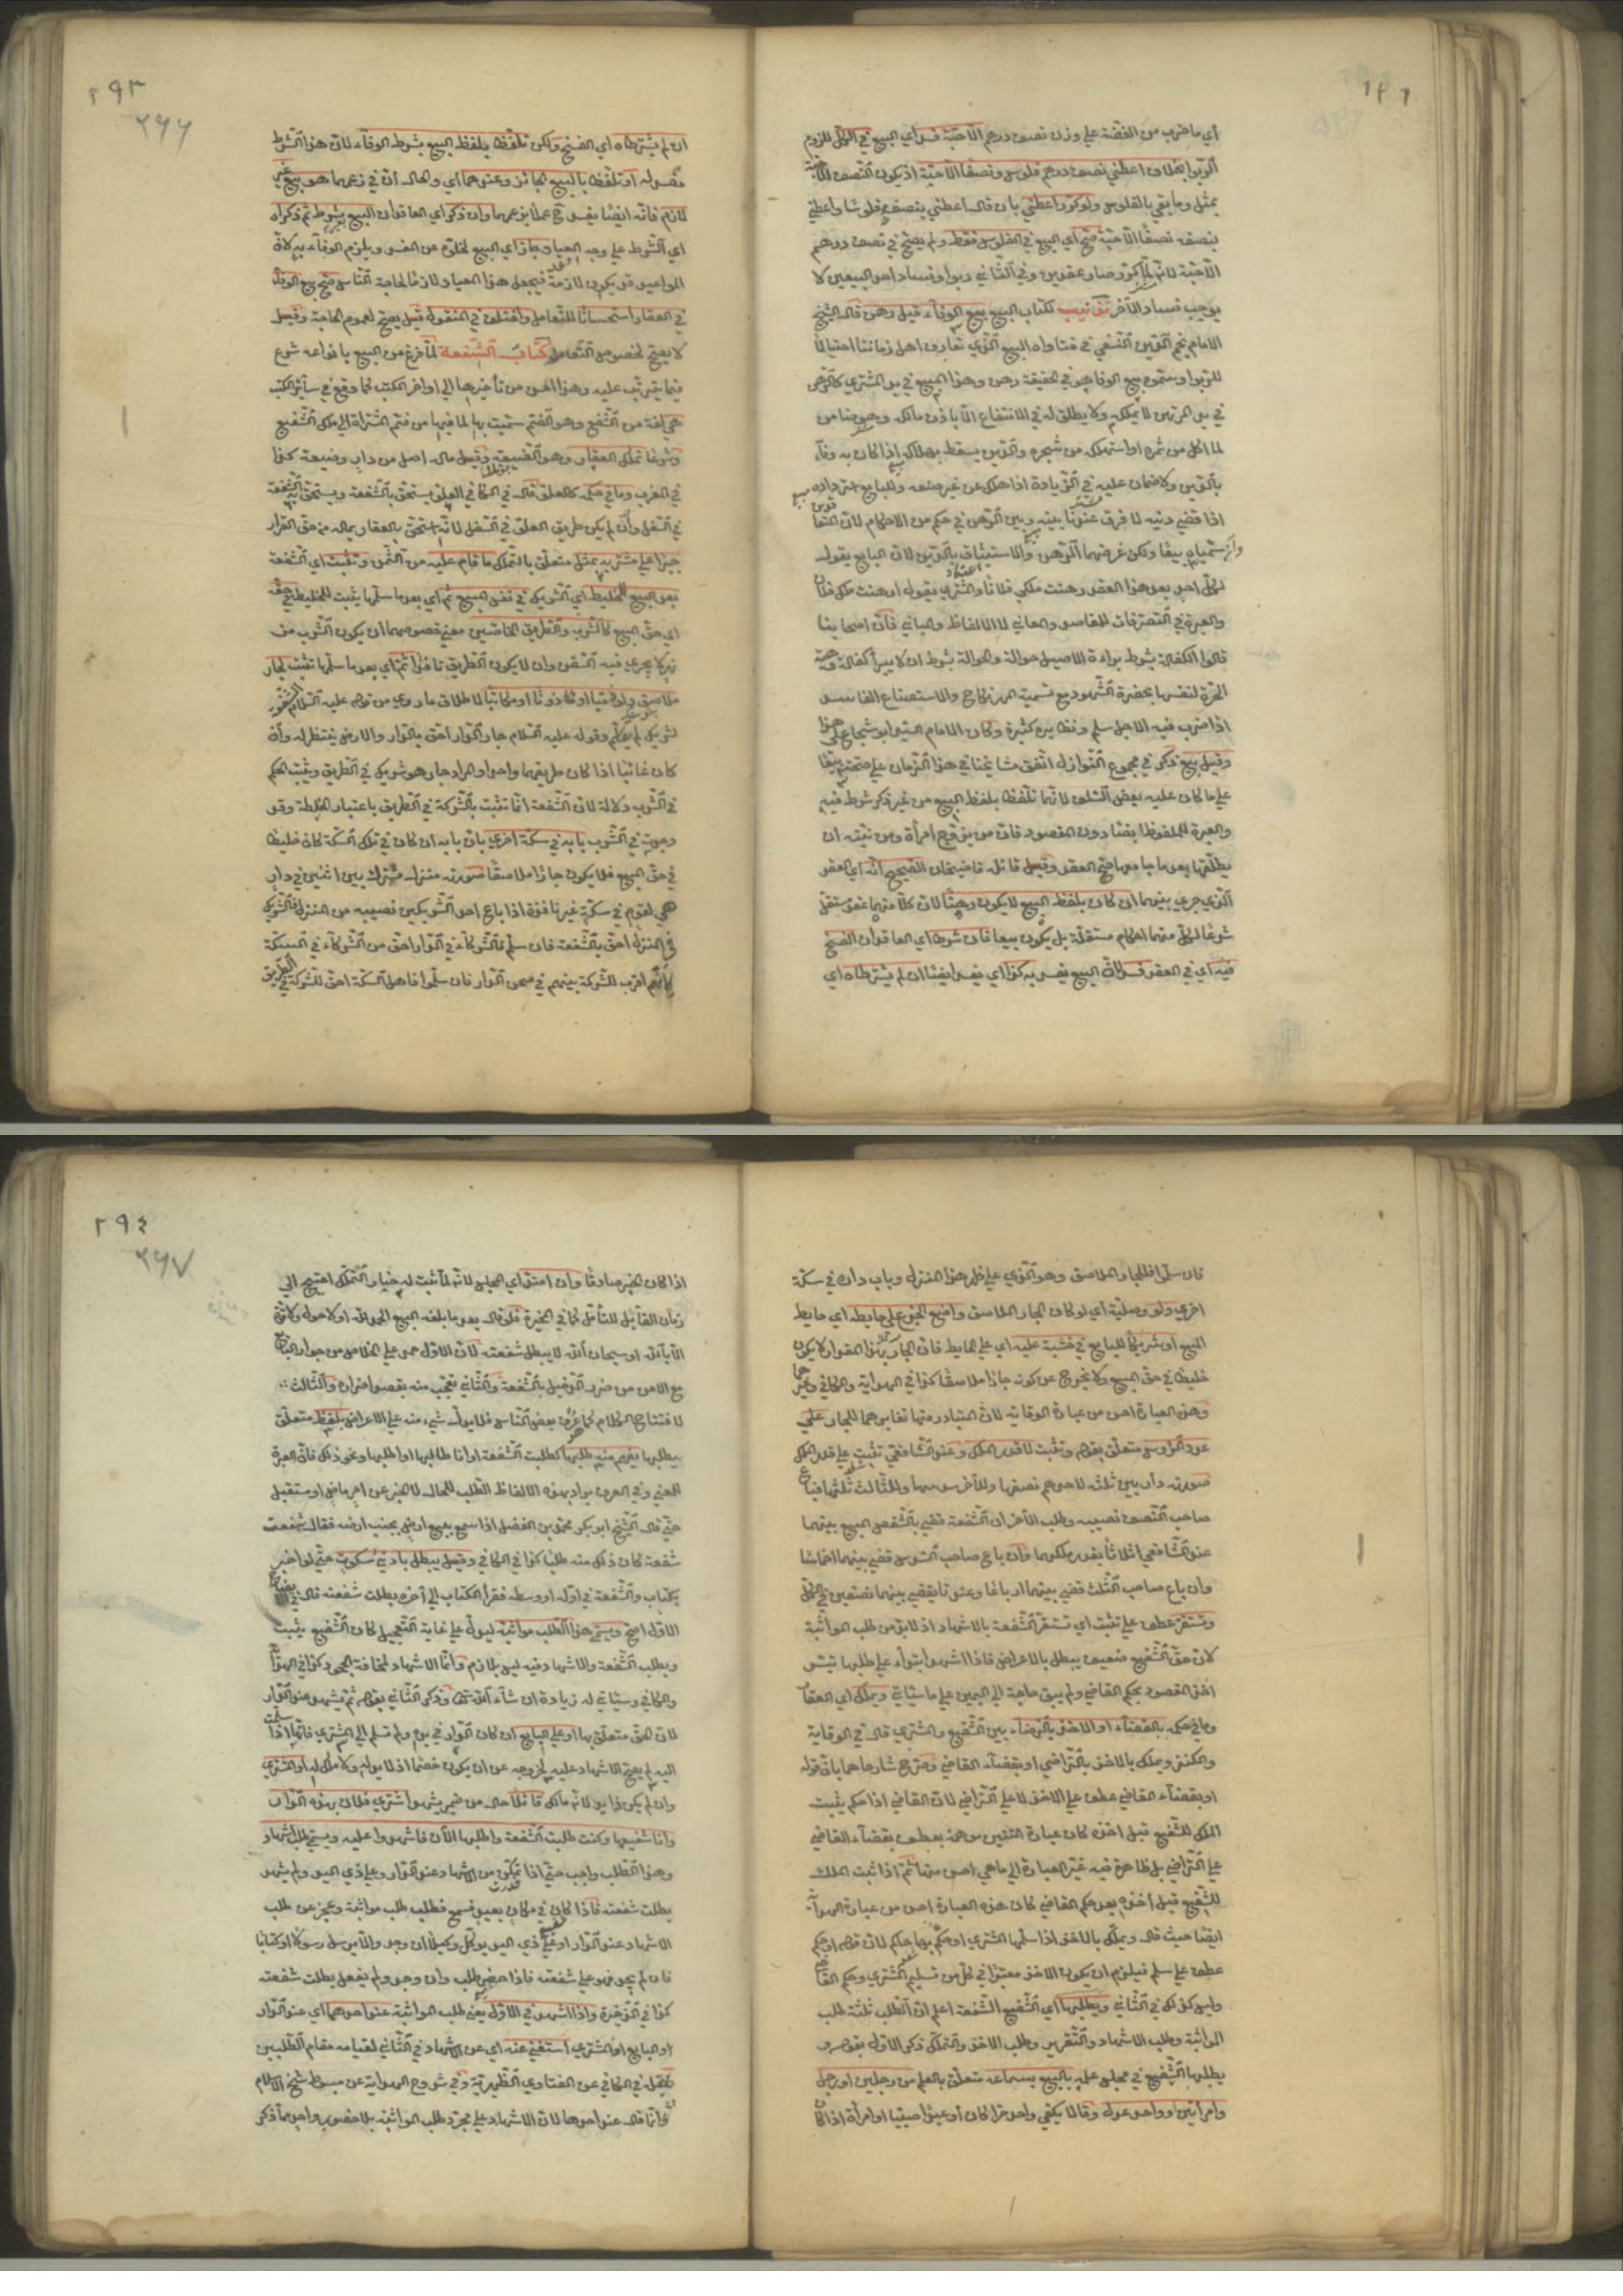 أي ما ضرب من الفضة على وزن نصف درهم الا حبة فسد أي البيع في الكل للزوم
الربوا بخلاف اعطني نصف درهم فلوس ونصفا الا حبة اذ يكون النصف الا حبة
بمثل وما بقي بالفلوس ولو كرر اعطني بان قال اعطني بنصفه فلوسا واعطني
بنصفه نصفا الا حبة صح أي البيع في الفلوس فقط ولم يصح في نصف درهم
الا حبة لانه لما كرر صار عقدين وفي الثاني ربوا وفساد احد البيعين لا
يوجب فساد الآخر تذنيب لكتاب البيع بيع الوفاء قيل رهن قال الشيخ
الامام نجم الدين النسفي في فتاواه البيع الذي تعارف اهل زماننا احتيالا
للربوا وسموه بيع الوفا هو في الحقيقة رهن وهذا المبيع في يد المشتري كالرهن
في يد المرتهن لا يملكه ولا يطلق له في الانتفاع الا باذن مالكه وهو ضامن
لما اكل من ثمره او استهلك من شجره والدين يسقط بهلاكه اذا كان به وفاء
بالدين ولا ضمان عليه في الزيادة اذا هلك عن غير صنعه وللبايع استرداده
اذا قضى دينه لا فرق عندنا بينه وبين الرهن في حكم من الاحكام لان المتعاقدين
وان سمياه بيعا ولكن غرضهما الرهن والاستيثاق بالدين لان البايع يقول
لكل احد بعد هذا العقد رهنت ملكي فلانا والمشتري يقول ارتهنت ملك فلان
والعبرة في التصرفات للمقاصد والمعاني لا الالفاظ والمباني فان اصحابنا
قالوا الكفالة بشرط براءة الاصيل حوالة والحوالة بشرط ان لا يبرأ كفالة وهبة
الحرة لنفسها بحضرة الشهود مع تسمية المهر نكاح والاستصناع الفاسد
اذا ضرب فيه الاجل سلم ونظايره كثيرة وكان الامام السيد ابو شجاع على هذا
وقيل بيع ذكر في مجموع النوازل اتفق مشايخنا في هذا الزمان على صحته بيعا
على ما كان عليه بعض السلف لانهما تلفظا بلفظ البيع من غير ذكر شرط فيه
والعبرة للملفوظ ايضا دون المقصود فان من يزوج امرأة ومن نيته ان
يطلقها بعد ما جامعها صح العقد وقيل قائله قاضيخان الصحيح انه أي العقد
الذي جرى بينهما ان كان بلفظ البيع لا يكون رهنا لان كلا منهما عقد مستقل
شرعا لكل منهما احكام مستقلة بل يكون بيعا فان شرطا أي العاقدان الفسخ
فيه أي في العقد فسد لان البيع يفسد به كذا أي يفسد ايضا ان لم يشترطاه أي
٢٩٣
٢٦٦
ان لم يشترطاه أي الفسخ ولكن تلفظا بلفظ البيع بشرط الوفاء لان هذا الشرط
مفسد له او تلفظا بالبيع الجائز وعندهما أي والحال ان في زعمهما هو بيع غير
لازم فانه ايضا يفسد ح عملا بزعمهما وان ذكر أي العاقدان البيع بلا شرط ثم ذكراه
اي الشرط على وجه الميعاد جاز أي البيع لخلوه عن المفسد ويلزم الوفاء به لان
المواعيد قد يكون لازمة فيجعل هذا الميعاد لازما لحاجة الناس صح بيع الوفاء
في العقار استحسانا للتعامل واختلف في المنقول قيل يصح لعموم الحاجة وقيل
لا يصح لخصوص التعامل كتاب الشفعة لما فرغ من البيع بانواعه شرع
فيما يترتب عليه وهذا احسن من تأخيرها الى اواخر الكتب كما وقع في سائر الكتب
هي لغة من الشفع وهو الضم سميت بها لما فيها من ضم المشتراة الى ملك الشفيع
وشرعا تملك العقار وهو الضيعة وقيل ماله اصل من دار وضيعة كذا
في المغرب وما في حكمه كالعلو قال في الكافي العلو يستحق بالشفعة ويستحق به الشفعة
في السفل وان لم يكن طريق العلو في السفل لانه التحق بالعقار بماله من حق القرار
جبرا على مشتريه بمثل متعلق بالتملك ما قام عليه من الثمن وتثبت أي الشفعة
بعد البيع للخليط أي الشريك في نفس المبيع ثم أي بعد ما سلمها يثبت للخليط في حقه
اي حق المبيع كالشرب والطريق الخاصين معنى خصوصهما ان يكون الشرب من
نهر لا يجري فيه السفن وان لا يكون الطريق نافذا ثم أي بعد ما سلمها تثبت لجار
ملاصق ولو ذميا او مأذونا او مكاتبا لاطلاق ما روي من قوله عليه السلام الشفعة
لشريك لم يقاسم وقوله عليه السلام جار الدار احق بالدار والارض ينتظر له وان
كان غائبا اذا كان طريقهما واحدا والمراد جار هو شريك في الطريق ويثبت الحكم
في الشرب دلالة لان الشفعة انما تثبت بالشركة في الطريق باعتبار الخلطة وقد
وجدت في الشرب بابه في سكة اخرى بان بابه ان كان في تلك السكة كان خليطا
في حق المبيع فلا يكون جارا ملاصقا صورته منزل مشترك بين اثنين في دار
هي لقوم في سكة غير نافذة اذا باع احد الشريكين نصيبه من المنزل فالشريك
في المنزل احق بالشفعة فان سلم فالشركاء في الدار احق من الشركاء في السكة
لانهم اقرب للشركة بينهم في صحن الدار فان سلموا فاهل السكة احق للشركة في الطريق
فان سلموا فللجار الملاصق وهو الذي على ظهر هذا المنزل وباب داره في سكة
اخرى ولو وصلية أي لو كان الجار الملاصق واضع الجذع على حايطه أي حايط
المبيع او شريكا للبايع في خشبة عليه أي على الحايط فان الجار بهذا المقدار لا يكون
خليطا في حق المبيع ولا يخرج عن كونه جارا ملاصقا كذا في الهداية والكافي وغيرهما
وهذه العبارة احسن من عبارة الوقاية لان المتبادر منها تغايرهما للجار على
عدد الرؤس متعلق بقوله وتثبت لا قدر الملك وعند الشافعي تثبت على قدر الملك
صورته دار بين ثلثة لاحدهم نصفها وللآخر سدسها وللثالث ثلثها فباع
صاحب النصف نصيبه وطلب الآخران الشفعة قضي بالشقص المبيع بينهما
عند الشافعي اثلاثا بقدر ملكهما وان باع صاحب السدس قضي بينهما اخماسا
وان باع صاحب الثلث قضي بينهما ارباعا وعندنا يقضى بينهما نصفين في الكل
وتستقر عطف على تثبت أي تستقر الشفعة بالاشهاد اذ لا بد من طلب المواثبة
لان حق الشفيع ضعيف يبطل بالاعراض فاذا اشهد ابتداء على طلبها تيسر
اخذ المقصود بحكم القاضي ولم يبق حاجة الى اليمين على ما سيأتي ويملك أي العقار
وما في حكمه بالقضاء او الاخذ بالرضاء بين الشفيع والمشتري قال في الوقاية
والكنز ويملك بالاخذ بالتراضي او بقضاء القاضي وصرح شارحاهما بان قوله
او بقضاء القاضي عطف على الاخذ لا على التراضي لان القاضي اذا حكم يثبت
الملك للشفيع قبل اخذه كان عبارة المتنين موهمة بعطف بقضاء القاضي
على التراضي بل ظاهرة فيه غير العبارة الى ما هي احسن منها ثم اذا ثبت الملك
للشفيع قبل اخذه بعد حكم القاضي كان هذه العبارة احسن من عبارة الهداية
ايضا حيث قال ويملك بالاخذ اذا سلمها المشتري او حكم بها حاكم لان قوله او حكم
عطف على سلم فيلزم ان يكون الاخذ معتبرا في كل من تسليم المشتري وحكم القاضي
وليس كذلك في الثاني ويطلبها أي الشفيع الشفعة اعلم ان الطلب ثلثة طلب
المواثبة وطلب الاشهاد والتقرير وطلب الاخذ والتملك ذكر الاول بقوله و
يطلبها الشفيع في مجلس علمه بالبيع بسماعه متعلق بالعلم من رجلين او رجل
وامرأتين او واحد عدل وقالا يكفي واحد حرا كان او عبدا صبيا او امرأة اذا كان
٢٩٤
٢٦٧
اذا كان الخبر صادقا وان امتد أي المجلس لانه لما ثبت له خيار التملك احتيج الى
زمان التأمل كما في المخيرة فلو قال بعد ما بلغه البيع الحمد لله او لا حول ولا قوة
الا بالله او سبحان الله لا يبطل شفعته لان الاول حمد على الخلاص من جوار البايع
مع الامن من ضرر الدخيل بالشفعة والثاني تعجب منه بقصد اضراره والثالث
لافتتاح الكلام كما عرف بعض الناس فلا يدل شيء منه على الاعراض بلفظ متعلق
بيطلبها يفهم منه طلبها كطلبت الشفعة او انا طالبها او اطلبها ونحو ذلك فان العبرة
للمعنى وفي العرف يراد بهذه الالفاظ الطلب للحال لا الخبر عن امر ماض او مستقبل
حتى قال الشيخ ابو بكر محمد بن الفضل اذا سمع بيع ارض بجنب ارضه فقال شفعت
شفعة كان ذلك منه طلبا كذا في الكافي وقيل يبطل بادنى سكوت حتى لو اخبر
بكتاب والشفعة في اوله او وسطه فقرأ الكتاب الى آخره بطلت شفعته قال في
الاول اصح ويسمى هذا الطلب مواثبة ليدل على غاية التعجيل كان الشفيع يثبت
ويطلب الشفعة والاشهاد فيه ليس بلازم وانما الاشهاد لمخافة الجحود كذا في الهداية
والكافي وسيأتي له زيادة ان شاء الله تعالى وذكر الثاني بقوله ثم يشهد عند الدار
لان الحق متعلق بها او على البايع ان كان الدار في يده ولم تسلم الى المشتري فانها اذا سلمت
اليه لم يصح الاشهاد عليه لخروجه عن ان يكون خصما اذ لا يد له ولا ملك له او المشتري
وان لم يكن ذا يد لانه مالك قائلا حال من ضمير يشهد اشترى فلان بهذه الدار
وانا شفيعها وكنت طلبت الشفعة واطلبها الآن فاشهدوا عليه ويسمى طلب اشهاد
وهذا الطلب واجب حتى اذا تمكن من الاشهاد عند الدار وعلى ذي اليد ولم يشهد
بطلت شفعته فاذا كان في مكان بعيد فسمع فطلب طلب مواثبة وعجز عن طلب
الاشهاد عند الدار او على ذي اليد يوكل وكيلا ان وجد والا يرسل رسولا او كتابا
فان لم يجد فهو على شفعته فاذا حضر طلب وان وجد ولم يفعل بطلت شفعته
كذا في الذخيرة واذا اشهد في الاول يعني طلب المواثبة عند احدهما أي عند الدار
او البايع او المشتري استغنى عنه أي عن الاشهاد في الثاني لقيامه مقام الطلبين
نقل في الكافي عن الفتاوى الظهيرية وفي شروح الهداية عن مبسوط شيخ الاسلام
وانما قال عند احدها لان الاشهاد على مجرد طلب المواثبة بلا حضور واحد مما ذكر